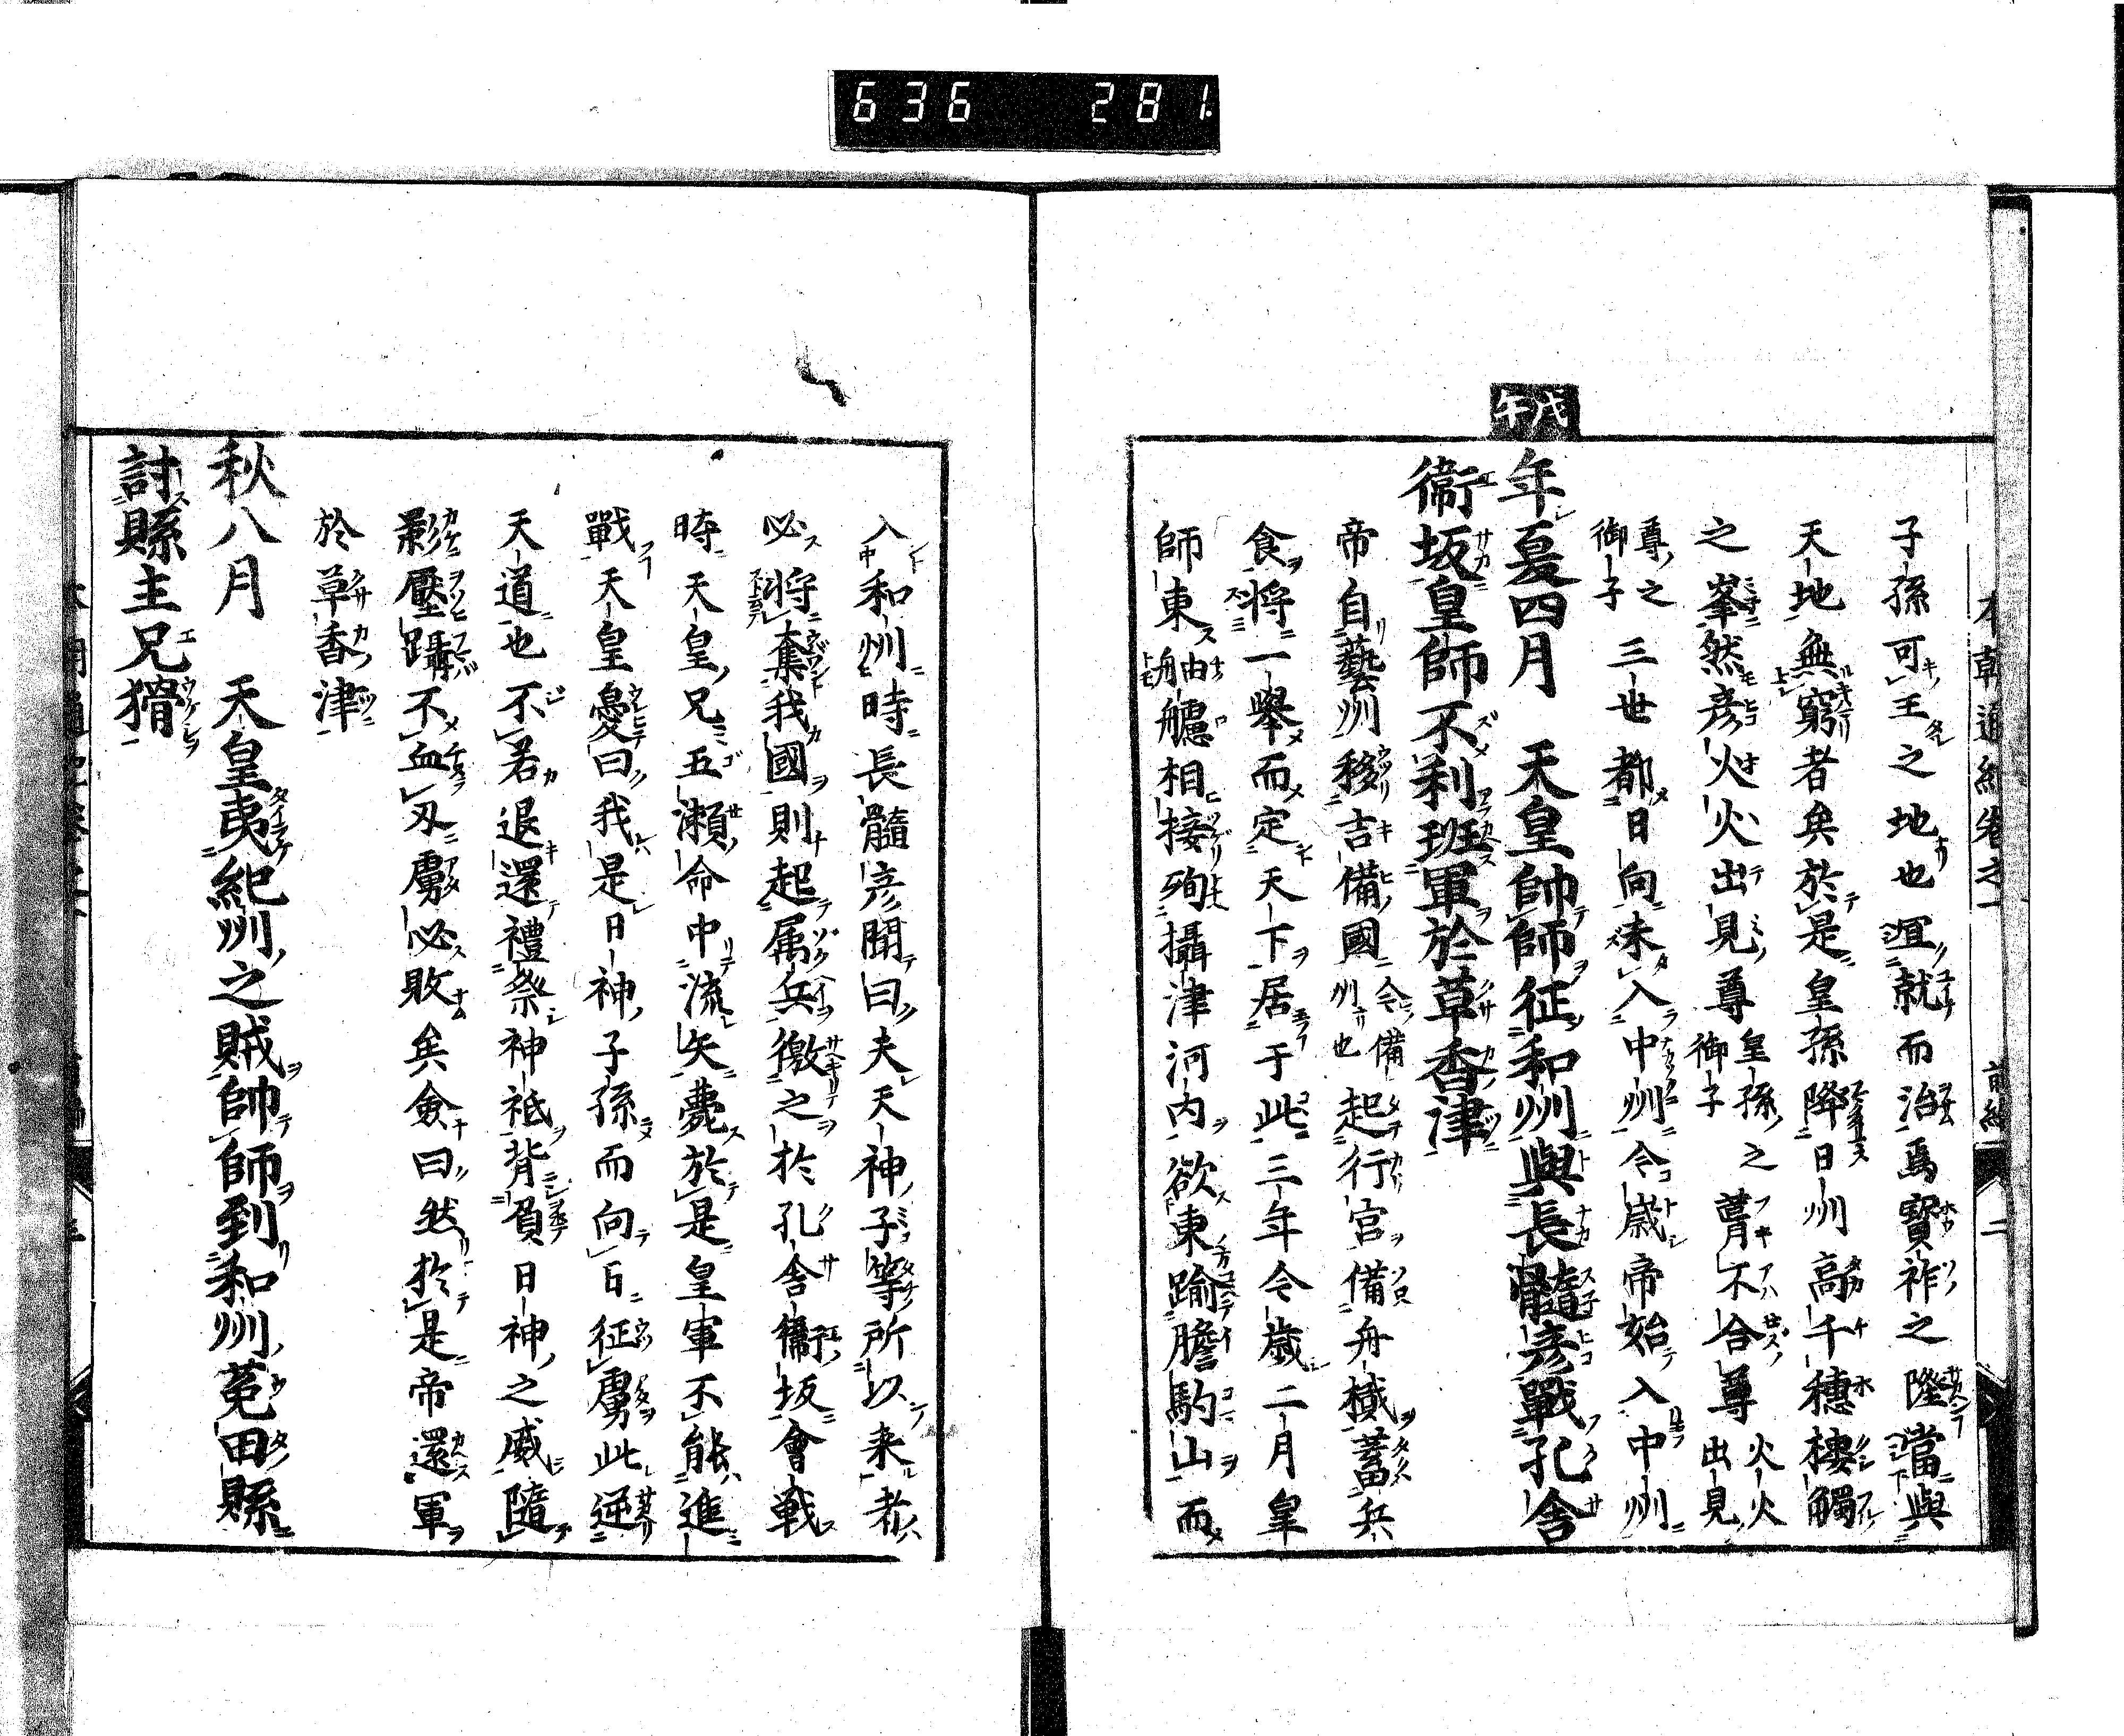 636 281
本朝通紀卷之一 前編 二
子孫可王之地也宜就而治焉寶祚之隆當與
天地無窮者矣於是皇孫降日州高千穗槵觸
之峯然彥火火出見尊皇孫之御子之葺不合尊火火出見
尊之御子三世都日向未入中州今歲帝始入中州
戊午
年夏四月 天皇帥師征和州與長髓彥戰孔舍
衞坂皇師不利班軍於草香津
帝自藝州移吉備國今備州也起行宮備舟檝蓄兵
食將一舉而定天下居于此三年今歲二月皇
師東舳艫相接殉攝津河內欲東踰膽駒山而
入中和州時長髓彥聞曰夫天神子等所以来者
必將奪我國則起属兵徼之於孔舍衞坂會戰
時天皇兄五瀨命中流矢薨於是皇軍不能進
戰天皇憂曰我是日神子孫而向日征虜此逆
天道也不若退還禮祭神祇背負日神之威隨
影壓躡不血刃虜必敗矣僉曰然於是帝還軍
於草香津
秋八月 天皇夷紀州之賊帥師到和州菟田縣
討縣主兄猾